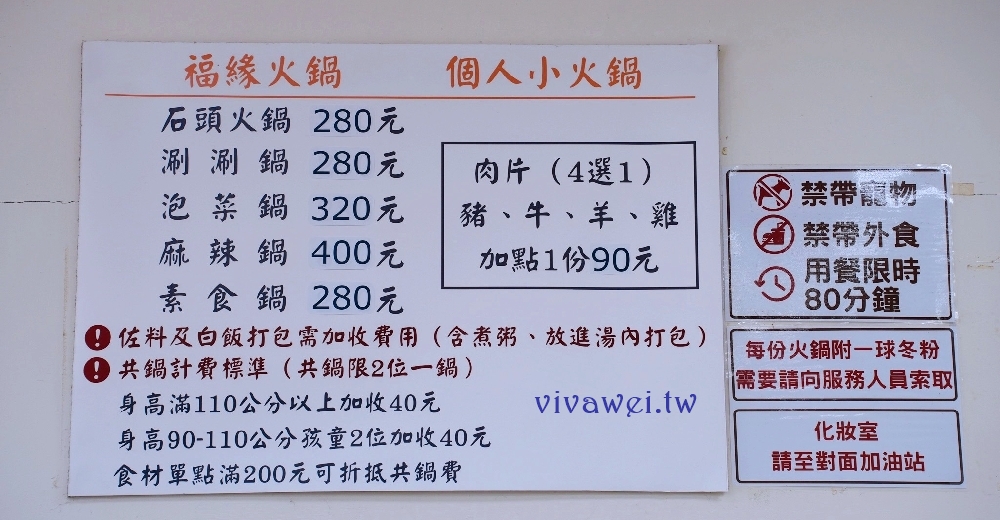 福緣火鍋 個人小火鍋
石頭火鍋 280元
涮涮鍋 280元
泡菜鍋 320元
麻辣鍋 400元
素食鍋 280元
肉片（4選1）
豬、牛、羊、雞
加點1份90元
佐料及白飯打包需加收費用（含煮粥、放進湯內打包）
共鍋計費標準（共鍋限2位一鍋）
身高滿110公分以上加收40元
身高90-110公分孩童2位加收40元
食材單點滿200元可折抵共鍋費
vivawei.tw
禁帶寵物
禁帶外食
用餐限時
80分鐘
每份火鍋附一球冬粉
需要請向服務人員索取
化妝室
請至對面加油站